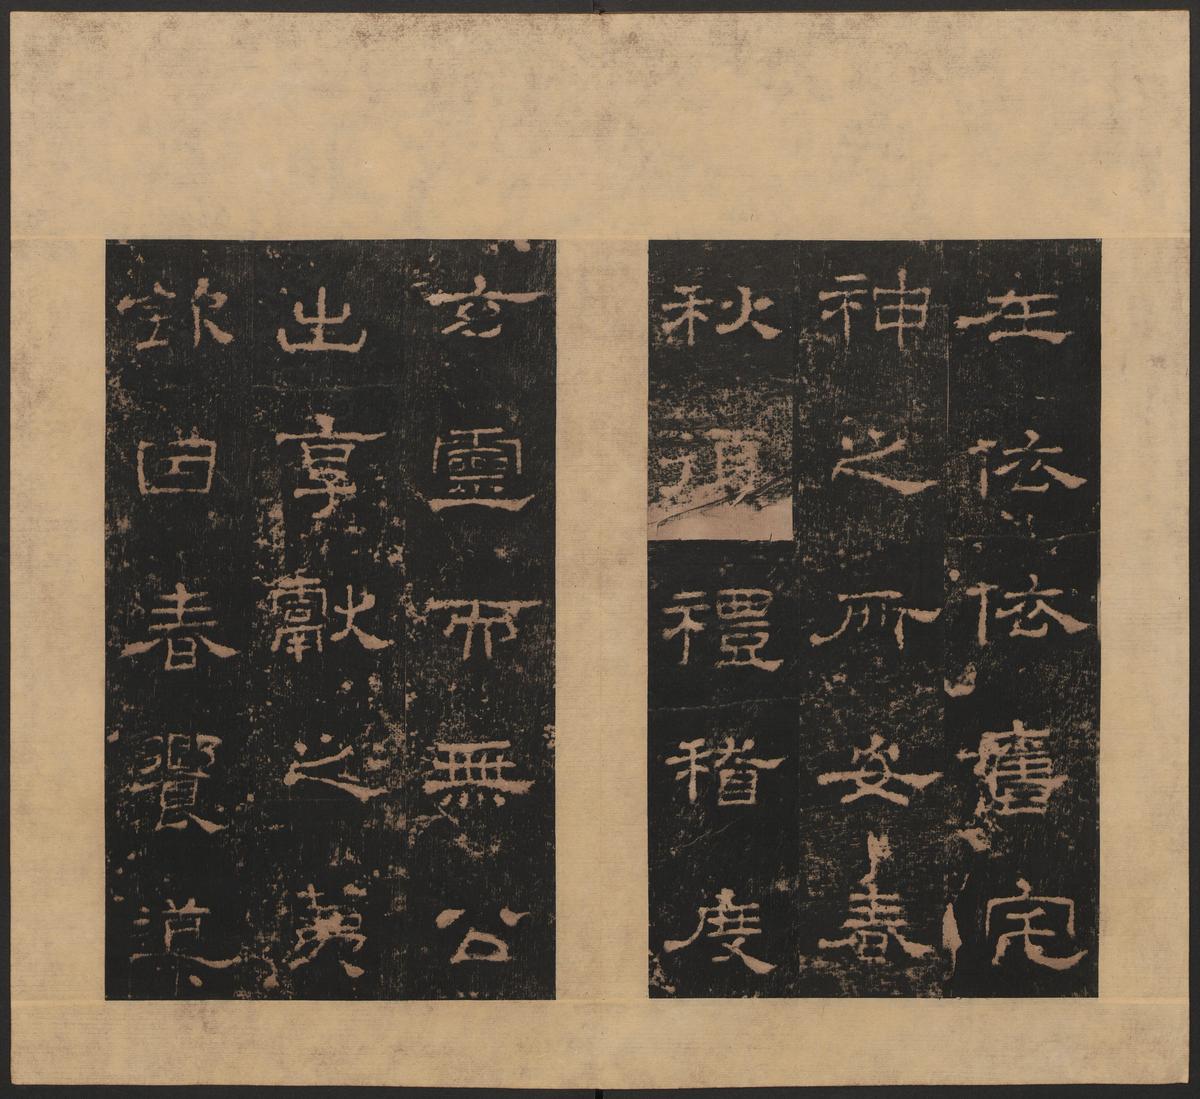 在依依舊宅
神之所安春
秋禮稽度
玄靈而無公
出享獻之
欽因春饗導